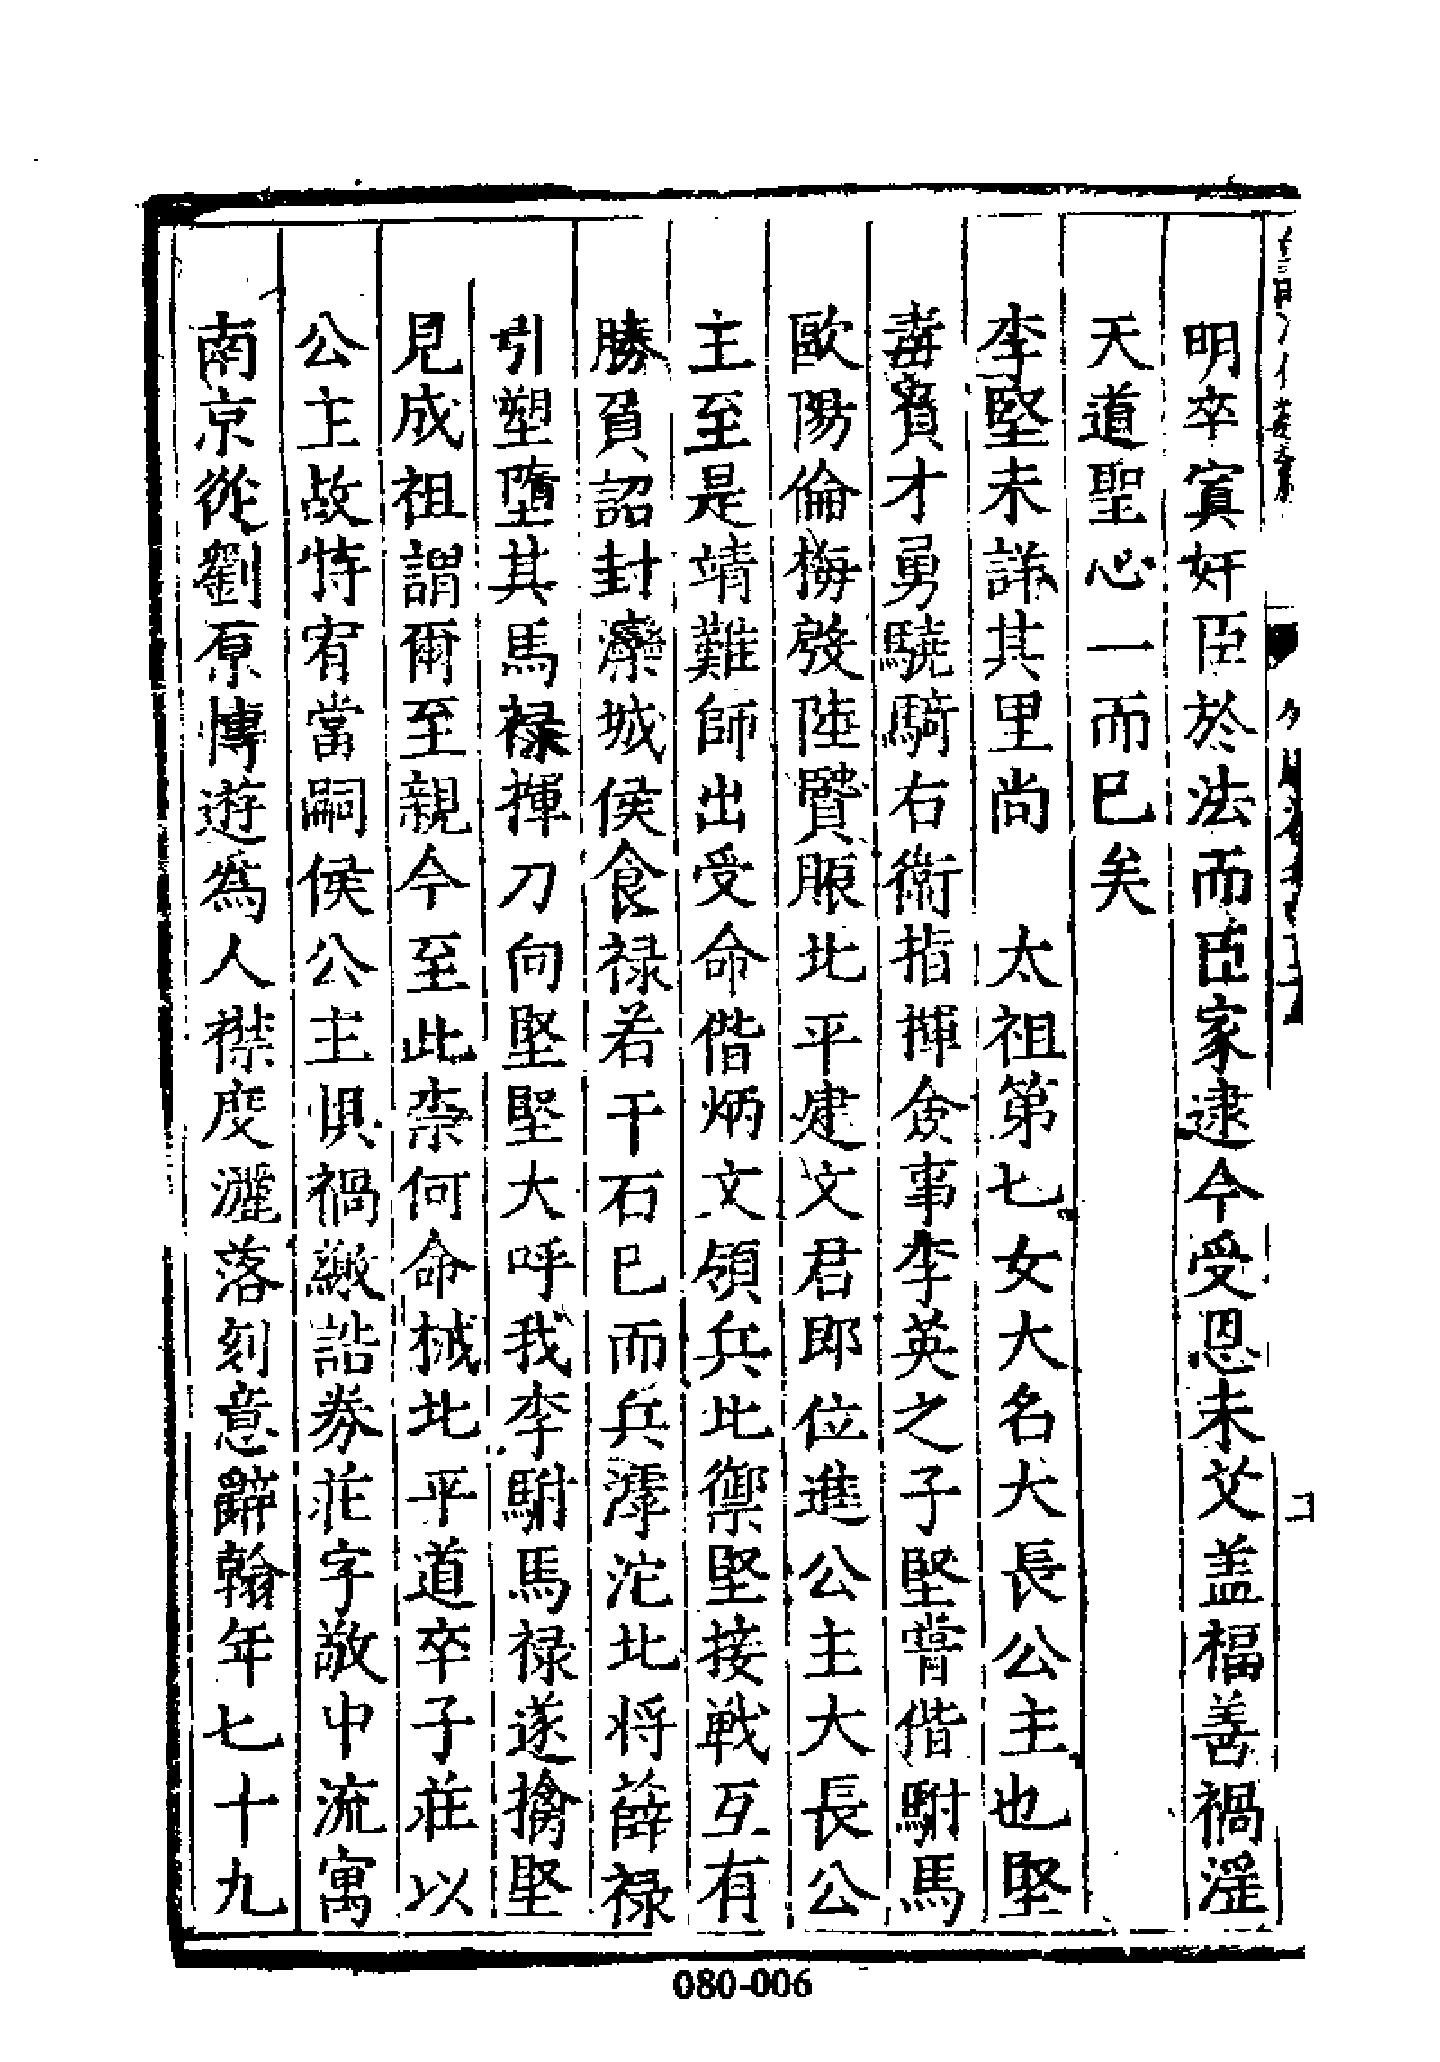 明卒寘奸臣於法而臣家逮今受恩未艾盖福善禍淫
天道聖心一而已矣
李堅未詳其里尚　太祖第七女大名大長公主也堅
有才勇驍騎右衛指揮僉事李英之子堅嘗偕駙馬
歐陽倫梅殷陸賢賑北平建文君即位進公主大長公
主至是靖難師出受命偕炳文領兵北禦堅接戦互有
勝負詔封灤城侯食禄若干石已而兵滹沱北将薛禄
引塑墮其馬禄揮刀向堅堅大呼我李駙馬禄遂擒堅
見成祖謂爾至親今至此柰何命械北平道卒子莊以
公主故特宥當嗣侯公主惧禍繳誥券荘字敬中流寓
南京從劉原博遊為人襟度灑落刻意辭翰年七十九
080-006